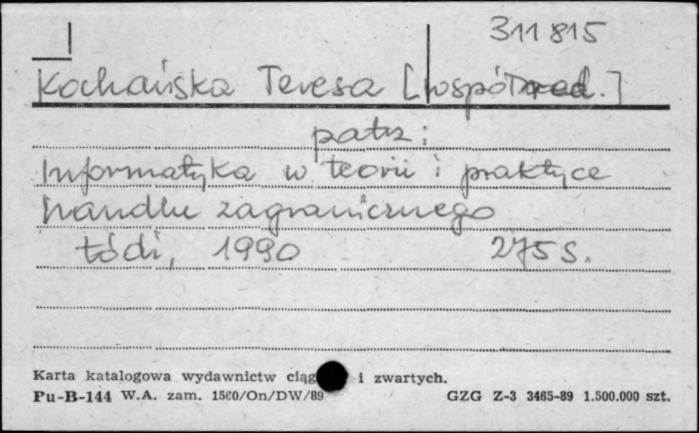 311815
Kochańska Teresa [współred.]
patrz:
Informatyka w teorii i praktyce
handlu zagranicznego
Łódź, 1990 275 s.
Karta katalogowa wydawnictw ciąg i zwartych.
Pu-B-144 W.A. zam. 1560/On/DW/89 GZG Z-3 3465-89 1.500.000 szt.